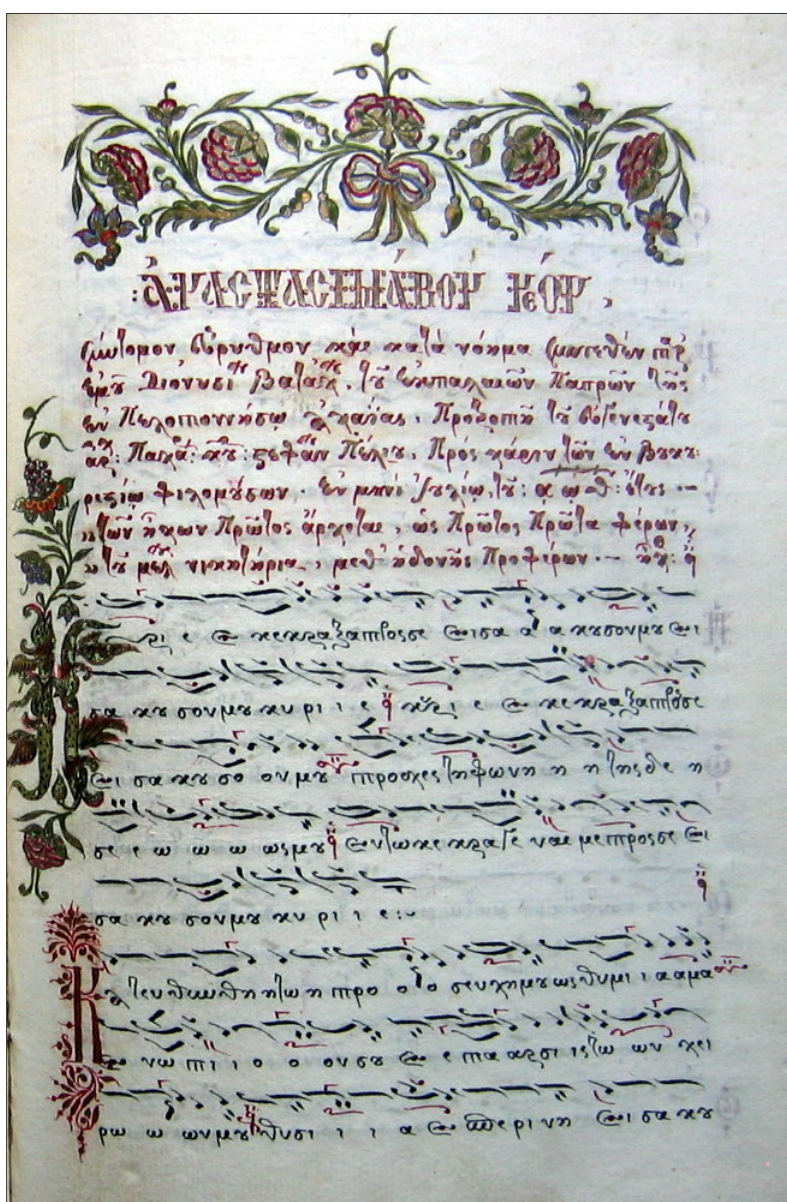 ἀναστασιμάριον νέον,
σύντομον εὔρυθμον καὶ κατὰ νόημα συντεθὲν παρ'
ἐμοῦ Διονυσίου, τοῦ ἐκ παλαιῶν Πατρῶν τῆς
ἐν Πελοποννήσῳ ἀχαΐας, Προτροπῇ τοῦ εὐγενεστάτου
Πρὸς χάριν τῶν ἐν Βουκου:
ρεστίῳ φιλομούσων. ἐν μηνὶ ἰουλίῳ, τοῦ: αωθ: ἔτους --
„ τῶν ἤχων Πρῶτος ἄρχεται, ὡς Πρῶτος Πρῶτα φέρων „
„ τοῦ μέλους νικητήρια, μεθ' ἡδονῆς Προφέρων. -- ἦχος
Κυ ρι ε ε κε κρα ξα προς σε ει σα α α κου σον μου ει
σα κου σον μου κυ ρι ι ε κυ ρι ε ε κε κρα ξα προς σε
ει σα κου σο ον μου προ σχες τη φω νη η η της δε η
σε ε ω ω ω ως μου εν τω κε κρα γε ναι με προς σε ει
σα κου σον μου κυ ρι ι ε :~
Κα τευ θυν θη η τω η προ ο ο σευ χη μου ως θυ μι ι α α μα
ε νω πι ι ο ο ον σου ε ε πα αρ σι ις τω ων χει
ρω ω ων μου θυ σι ι ι α ε σπε ρι νη ει σα κου